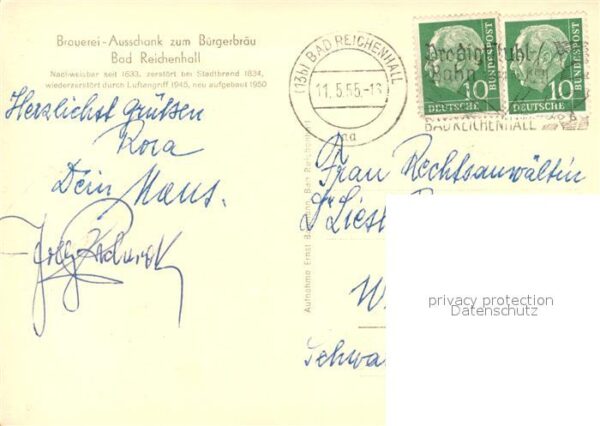 Brauerei-Ausschank zum Bürgerbräu
Bad Reichenhall
Nachweisbar seit 1633, zerstört bei Stadtbrand 1834,
wiederzerstört durch Luftangriff 1945, neu aufgebaut 1950
Herzlichst grüßen
Rosa
Dein Hans.
(13b) BAD REICHENHALL
11.5.55.-18
Predigtstuhl-
Bahn
BAD REICHENHALL
10
BUNDESPOST
DEUTSCHE
10
BUNDESPOST
DEUTSCHE
Aufnahme Ernst
Bad Reichenhall
Frau Rechtsanwältin
Dr Liesl
W
Schwa
privacy protection
Datenschutz